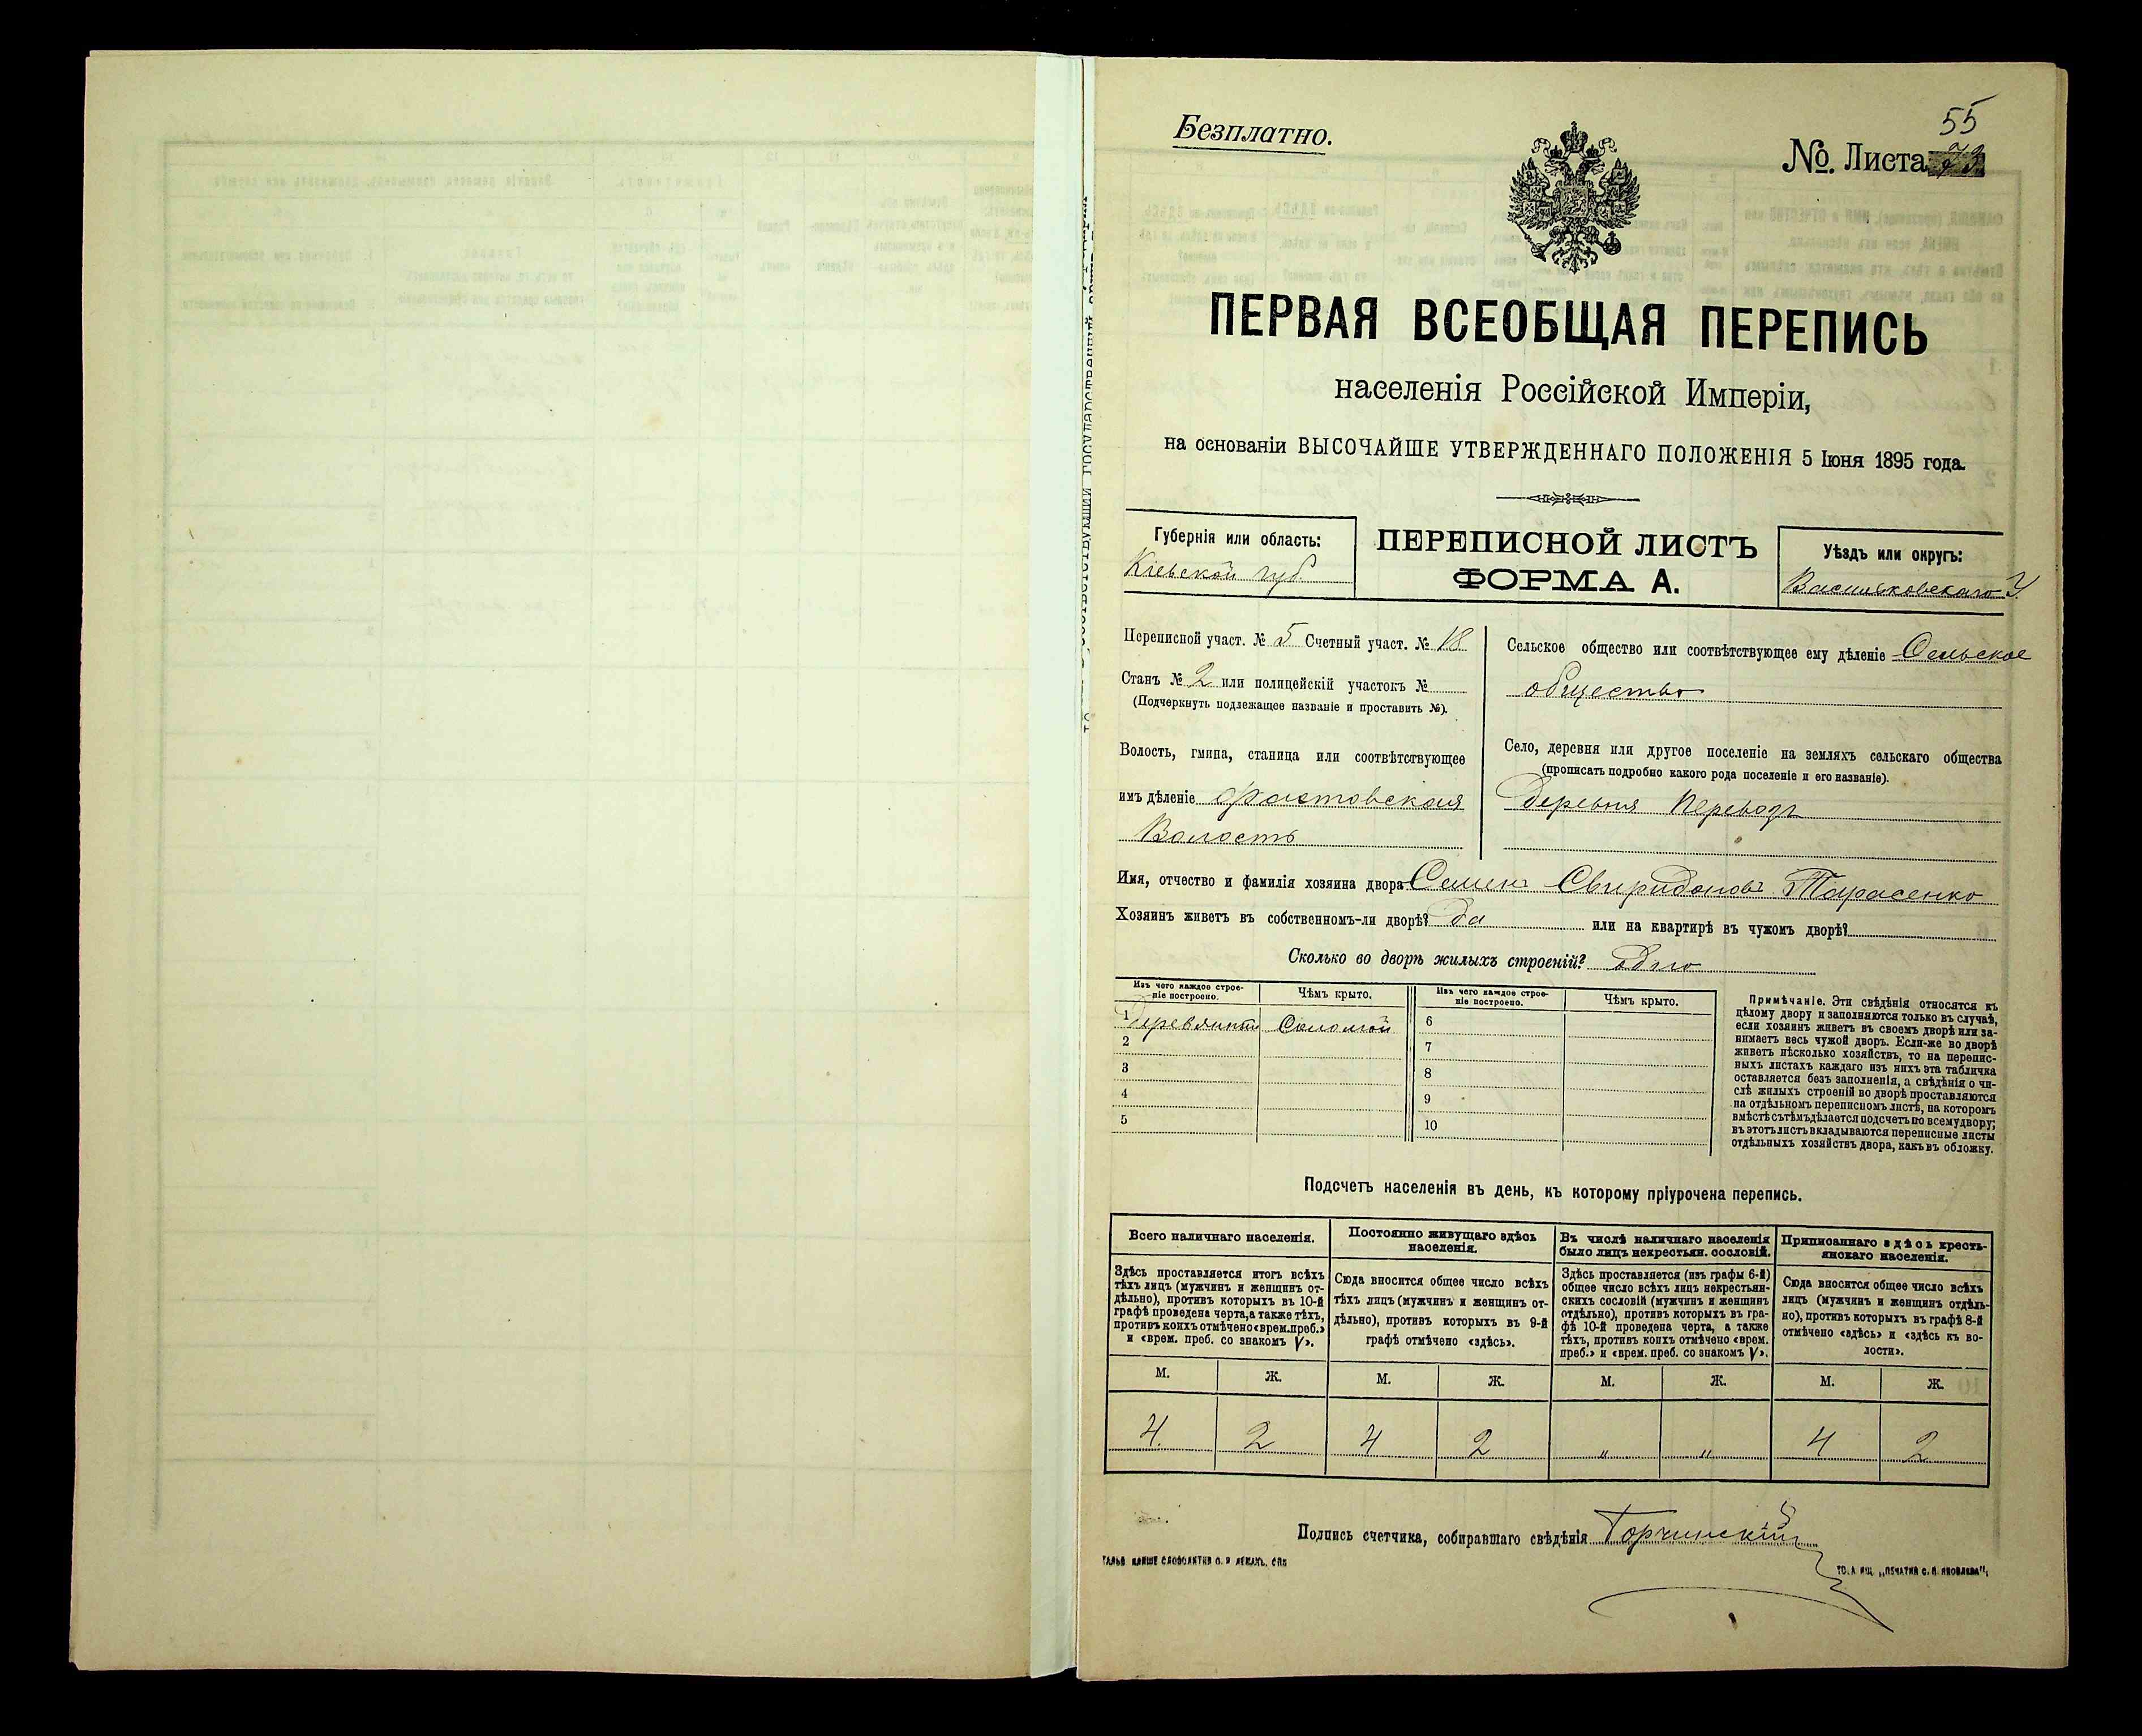 Безплатно.
55
№. Листа
ПЕРВАЯ ВСЕОБЩАЯ ПЕРЕПИСЬ
населенія Россійской Имперіи,
на основаніи ВЫСОЧАЙШЕ УТВЕРЖДЕННАГО ПОЛОЖЕНІЯ 5 Іюня 1895 года.
Губернія или область:
Кіевской губ.
ПЕРЕПИСНОЙ ЛИСТЪ
ФОРМА А.
Уѣздъ или округъ:
Васильковскаго У.
Переписной участ. № 5 Счетный участ. № 18
Станъ № 2 или полицейскій участокъ №
(Подчеркнуть подлежащее названіе и проставить №).
Волость, гмина, станица или соотвѣтствующее
имъ дѣленіе Фастовская
Волость
Сельское общество или соотвѣтствующее ему дѣленіе Сельское
общество
Село, деревня или другое поселеніе на земляхъ сельскаго общества
(прописать подробно какого рода поселеніе и его названіе).
Деревня Переводъ
Имя, отчество и фамилія хозяина двора Семенъ Свиридоновъ Тарасенко
Хозяинъ живетъ въ собственномъ-ли дворѣ? да или на квартирѣ въ чужомъ дворѣ?
Сколько во дворѣ жилыхъ строеній? одно
Изъ чего каждое строе-
ніе построено.
Чѣмъ крыто.
Изъ чего каждое строе-
ніе построено.
Чѣмъ крыто.
1 Соломой 6
2 7
3 8
4 9
5 10
Примѣчаніе. Эти свѣдѣнія относятся къ
цѣлому двору и заполняются только въ случаѣ,
если хозяинъ живетъ въ своемъ дворѣ или за-
нимаетъ весь чужой дворъ. Если-же во дворѣ
живетъ нѣсколько хозяйствъ, то на перепис-
ныхъ листахъ каждаго изъ нихъ эта табличка
оставляется безъ заполненія, а свѣдѣнія о чи-
слѣ жилыхъ строеній во дворѣ проставляются
на отдѣльномъ переписномъ листѣ, на которомъ
вмѣстѣ съ тѣмъ дѣлается подсчетъ по всему двору;
въ этотъ листъ вкладываются переписные листы
отдѣльныхъ хозяйствъ двора, какъ въ обложку.
Подсчетъ населенія въ день, къ которому пріурочена перепись.
Всего наличнаго населенія.
Здѣсь проставляется итогъ всѣхъ
тѣхъ лицъ (мужчинъ и женщинъ от-
дѣльно), противъ которыхъ въ 10-й
графѣ проведена черта, а также тѣхъ,
противъ коихъ отмѣчено «врем. преб.»
и «врем. преб. со знакомъ V».
Постоянно живущаго здѣсь
населенія.
Сюда вносится общее число всѣхъ
тѣхъ лицъ (мужчинъ и женщинъ от-
дѣльно), противъ которыхъ въ 9-й
графѣ отмѣчено «здѣсь».
Въ числѣ наличнаго населенія
было лицъ некрестьян. сословій.
Здѣсь проставляется (изъ графы 6-й)
общее число всѣхъ лицъ некрестьян-
скихъ сословій (мужчинъ и женщинъ
отдѣльно), противъ которыхъ въ гра-
фѣ 10-й проведена черта, а также
тѣхъ, противъ коихъ отмѣчено «врем.
преб.» и «врем. преб. со знакомъ V».
Приписаннаго здѣсь кресть-
янскаго населенія.
Сюда вносится общее число всѣхъ
лицъ (мужчинъ и женщинъ отдѣль-
но), противъ которыхъ въ графѣ 8-й
отмѣчено «здѣсь» и «здѣсь къ во-
лости».
М. Ж. М. Ж. М. Ж. М. Ж.
4 2 4 2 „ „ 4 2
Подпись счетчика, собиравшаго свѣдѣнія Горчинскій